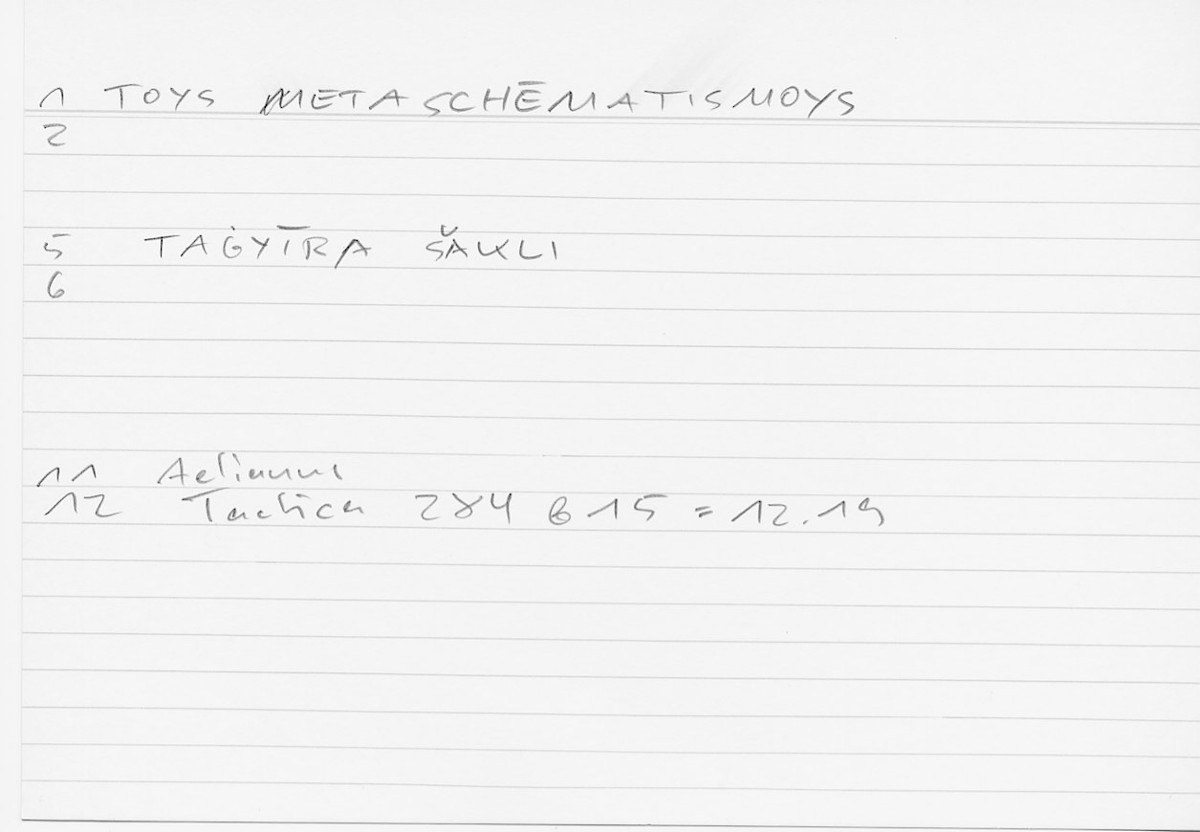 1 TOYS METASCHĒMATISMOYS
2
5 TAĠYĪRA ŠAKLI
6
11 Aelianus
12 Tactica 284 B 15 = 12.19